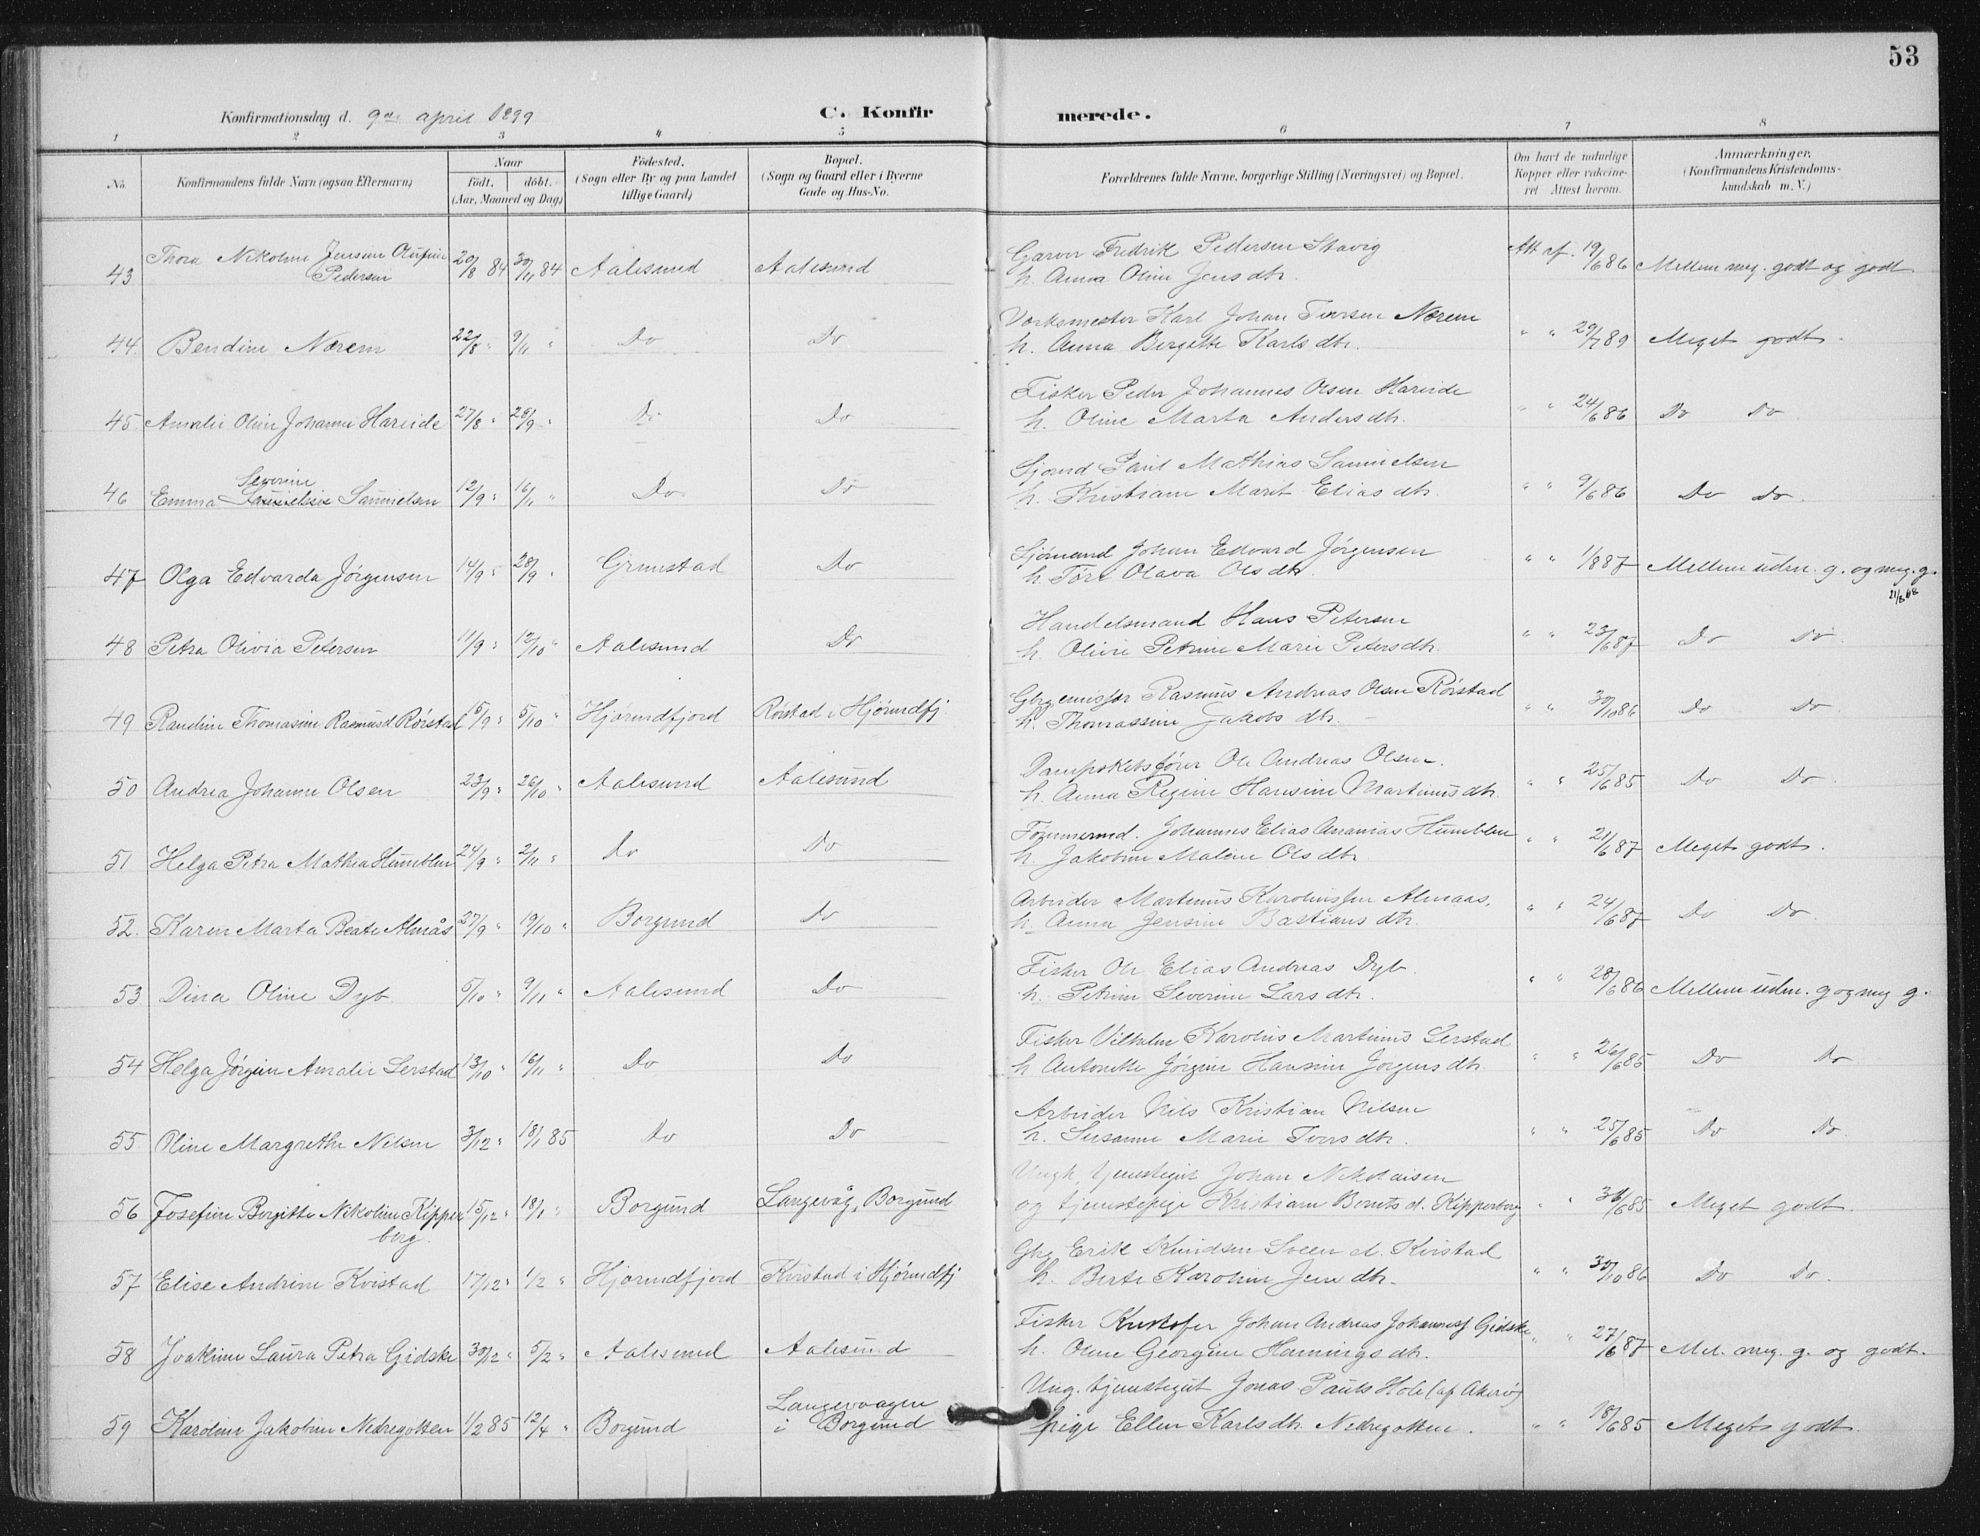 53
Konfirmationsdag d. 9de april 1899 C. Konfirmerede.
1 2 3 4 5 6 7 8
No. Konfirmandens fulde Navn (ogsaa Efternavn) Naar födt. döbt. (Aar, Maaned og Dag) Födested. (Sogn eller By og paa Landet tillige Gaard) Bopæl. (Sogn og Gaard eller i Byerne Gade og Hus-No. Forældrenes fulde Navne, borgerlige Stilling (Næringsvei) og Bopæl. Om havt de naturlige Kopper eller vakcineret Attest herom. Anmærkninger. (Konfirmandens Kristendomskundskab m. V.)
43 Thora Nikoline Jensine Olufine Pedersen 20/8 84 30/11 84 Aalesund Aalesund Fredrik Pedersen Stavig
h. Anna Oline Jensdtr. Att af. 19/6 86 Mellem meg. godt og godt
44 Bendine Nærem 22/8 " 9/11 " Do Do Verksmester Karl Johan Iversen Nærem
h. Anna Bergitte Karlsdtr. " " 29/7 89 Meget godt.
45 Amalie Oline Johanne Hareide 27/8 " 28/9 " Do Do Fisker Peder Johannes Olsen Hareide
h. Oline Marta Andersdtr. " " 24/6 86 Do Do
46 Emma Severine Samuelsen 12/9 " 16/11 " Do Do Sjømd Paul Mathias Samuelsen
h. Kristiane Marit Eliasdtr. " " 9/6 86 Do Do.
47 Olga Edvarda Jørgensen 14/9 " 28/9 " Grimstad Do Sjømand Johan Edvard Jørgensen
h. Olava Olsdtr. " " 1/8 87 Mellem udm. g. og meg. g.
21/8 68
48 Petra Olivia Petersen 11/9 " 12/10 " Aalesund Do Handelsmand Hans Petersen
h. Olivie Petrine Marie Petersdtr. " " 23/6 87 Do Do
49 Randine Thomasine Rasmusd Rörstad 15/9 " 5/10 " Hjørundfjord Rørstad i Hjørundfj Rasmus Andreas Olsen Rörstad
h. Thomassine Jakobsdtr. " " 30/10 86 Do Do.
50 Andrea Johanne Olsen 23/9 " 26/10 " Aalesund Aalesund Dampskibsfører Ole Andreas Olsen.
h. Anna Regine Hansine Martinusdtr. " " 25/6 85 Do Do
51 Helga Petra Mathea Humblen 24/9 " 2/11 " Do Do Tømmermd. Johannes Elias Ananias Humblen
h. Jakobine Malene Olsdtr. " " 21/6 87 Meget godt.
52. Karen Marta Beate Almås 27/9 " 19/10 " Borgund Do Arbeider Martinus Karolinssen Almaas.
h. Anna Jensine Bastiansdtr. " " 24/6 87 Do Do.
53 Dina Oline Dyb 5/10 " 9/11 " Aalesund Do Fisker Ole Elias Andreas Dyb.
h. Petrine Severine Larsdtr. " " 28/6 86 Mellem udm. g og meg g.
54 Helga Jørgine Amalie Serstad 13/10 " 16/11 " Do Do Fisker Vilhelm Karolus Martinus Serstad
h Antonette Jörgine Hansine Jørgensdtr. " " 26/6 85 Do Do
55 Oline Margrethe Nilsen 3/12 " 18/1 85 Do Do Arbeider Nils Kristian Nilsen
h. Susanne Marie Iversdtr. " " 25/6 85 Do Do.
56 Josefine Bergitte Nikoline Kipperberg. 15/12 " 18/1 " Borgund Langevåg, Borgund Ungk. tjenestegut Johan Nikolaisen
og tjenestepige Kristiane Berntsd. Kipperberg " 6/85 Meget godt.
57 Elise Andrine Kvistad 17/12 " 1/2 " Hjørundfjord Kvistad i Hjørundfj Gbr Erik Knudsen Sveen el. Kvistad
h. Berte Karoline Jensdtr. " " 30/10 86 Do Do.
58 Joakime Laura Petra Gidske 30/12 " 5/2 " Aalesund Aalesund Fisker Kristofer Johan Andreas Johannesf Gidske
h. Oline Georgine Henningsdtr. " " 27/6 87 Mel. meg. g. og godt.
59 Karoline Jakobine Nedregotten 1/2 85 12/4 " Borgund Langevaagen i Borgund Ung. tjenestegut Jonas Pauls Hole (af Akerö)
pige Ellen Karlsdtr. Nedregotten. " " 18/6 85 Meget godt.